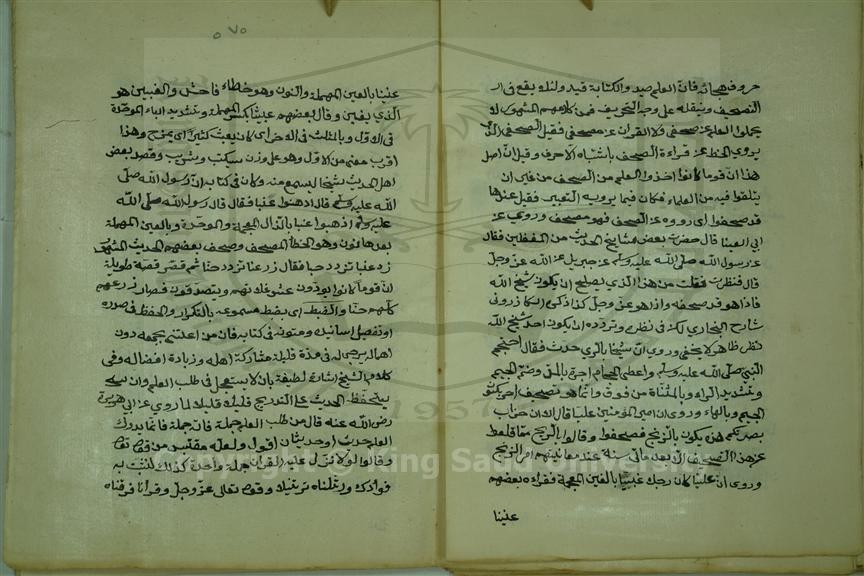 حروف هجائه فان العلم صيد والكتابة قيد ولئلا يقع في ال
التصحيف وينقله على وجه التحريف فمن كلامهم المشهور لا
تحملوا العلم عن صحفي ولا القران عن مصحفي فقيل الصحفي الذي
يروي الخطأ عن قراءة الصحف باشتباه الاحرف وقيل ان اصل
هذا ان قوما كانوا اخذوا العلم من الصحف من غير ان
يتلقوا فيه من العلماء فكان فيما يروونه التغيير فيقل عندها
قد صحفوا اي رووه عن الصحف فهو مصحف وروي عن
ابي العينا قال حضرت بعض مشايخ الحديث من المغفلين فقال
عن رسول الله صلى الله عليه وسلم عن جبريل عن الله عز وجل
قال فنظرت فقلت من هذا الذي يصلح ان يكون شيخ الله
فاذا هو قد صحفه واذا هو عز وجل كذا ذكره الكازروني
شارح البخاري لكن في نظر وتردده ان يكون احد شيخ الله
نظر ظاهر لا يخفى وروي ان شيخا بالري حدث فقال احتجم
النبي صلى الله عليه وسلم واعطى الحجام اجره بالمد وضم الجيم
وتشديد الراء وبالمثناة من فوق وانما هو تصحيف اجره بسكون
الجيم وبالهاء وروي ان امير المؤمنين عليا قال الا ان خراب
بصرتكم هذه يكون بالزنج فصحفوا وقالوا بالريح فما اقلعوا
عن هذا التصحيف الا بعد مائتي سنة عند معاينتهم امر الزنج
وروي ان عليا كان رجلا غبينا بالغين المعجمة فقراه بعضهم
عنينا
٥٧٠
عنينا بالعين المهملة والنون وهو خطاء فاحش والغبين هو
الذي يغبن وقال بعضهم عبيثا بكسر المهملة وتشديد الباء الموحدة
في الاول وبالمثلث في الاخر اي كان يعبث كثيرا اي يمزح وهذا
اقرب معنى من الاول وهو على وزن سكيت وشريب وقصد بعض
اهل الحديث شيخا ليسمع منه وكان في كتابه ان رسول الله صلى
الله عليه وسلم قال ادهنوا غبا فقال قال رسول الله صلى الله
عليه وسلم اذهبوا عنا بالذال المعجمة والموحدة وبالعين المهملة
بعدها نون وهو الخطأ المصحف وصحف بعضهم الحديث المشهور
زر غبا تزدد حبا فقال زرعنا تزدد حنا ثم فسر قصة طويلة
ان قوما كانوا لا يؤدون عشر غلاتهم ولا يتصدقون فصار زرعهم
كلهم حنا والضبط اي يضبط مسموعه بالتكرار والحفظ في صدره
او تفصيل اسانيده ومتونه في كتابه فان من اعتنى بجمعه دون
اهمال يرجى له في مدة قليلة مشاركة اهله وزيادة افضاله وفي
كلام الشيخ اشارة لطيفة بان لا يستعجل في طلب العلم وان
يتحفظ الحديث على التدريج قليلا قليلا لما روي عن ابي هريرة
رضي الله عنه قال من طلب العلم جملة فاته جملة وانما يدرك
العلم حديث او حديثان اقول ولعله مقتبس من قوله تعالى
وقالوا لولا نزل عليه القران جملة واحدة كذلك لنثبت به
فوادك ورتلناه ترتيلا وقوله تعالى عز وجل وقرانا فرقناه
Copyright © King Saud University
1957